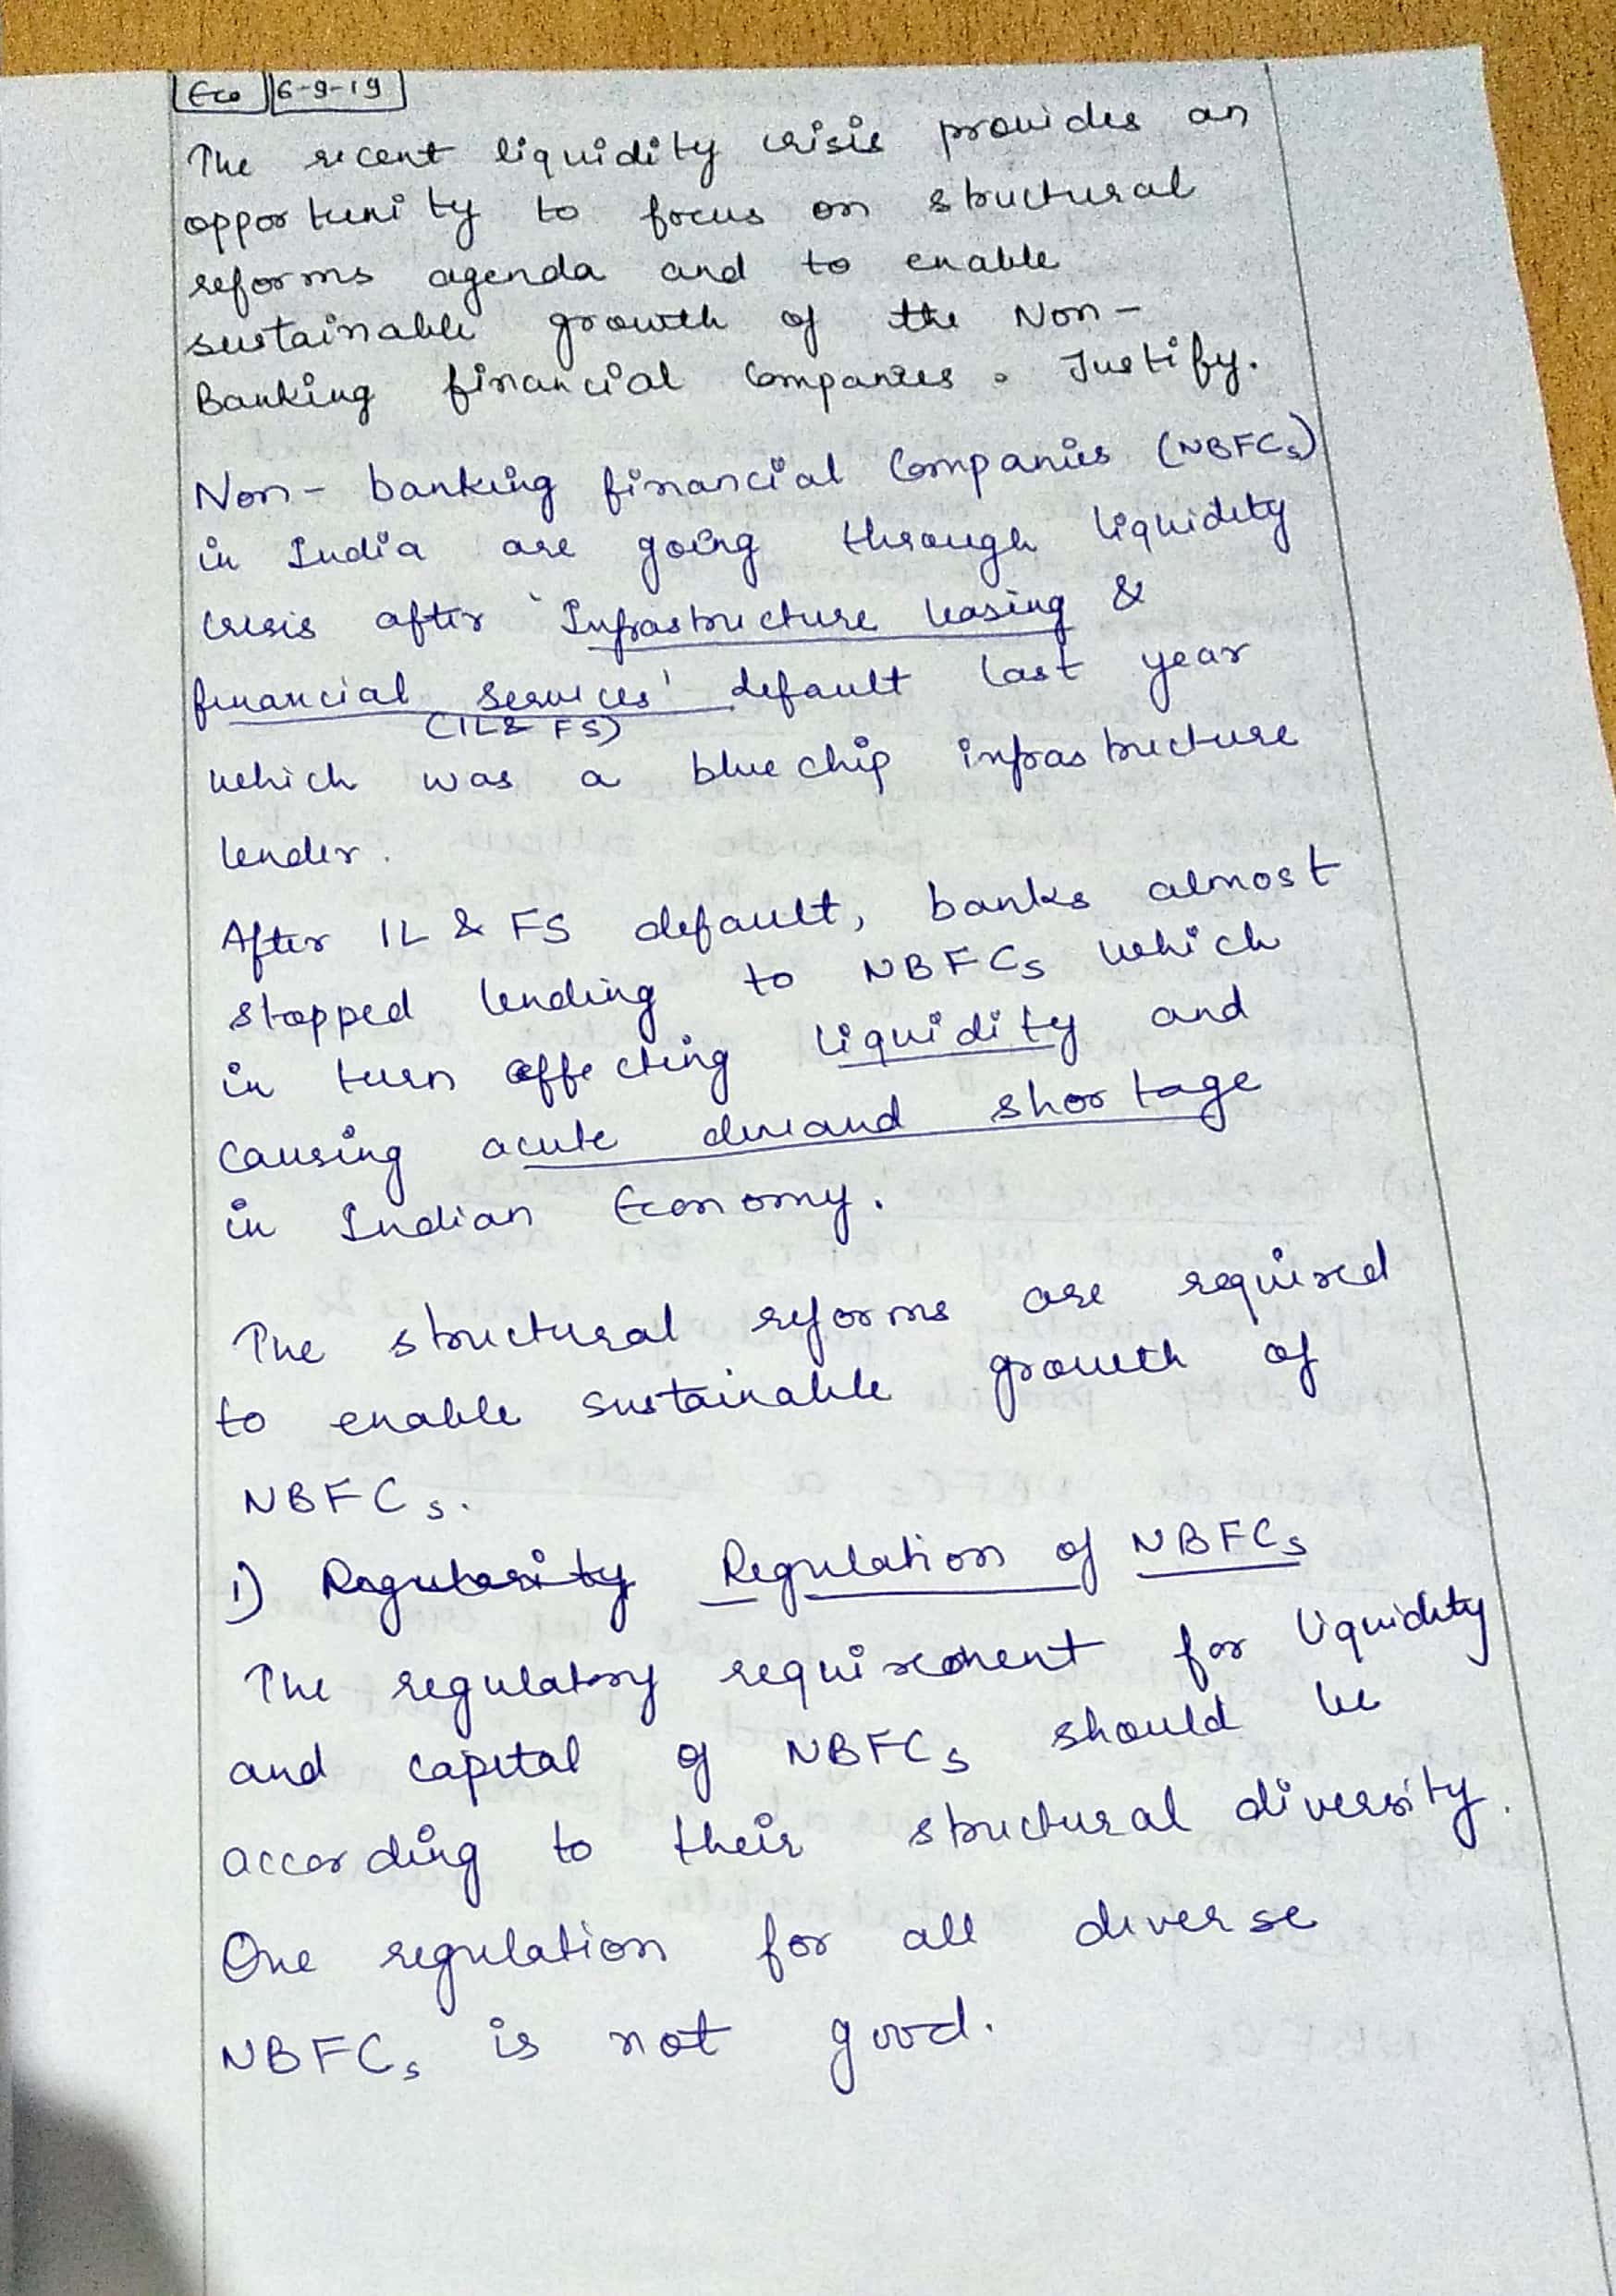 Eco 6-9-19
The recent liquidity crisis provides an
opportunity to focus on structural
reforms agenda and to enable
sustainable growth of the Non-
Banking financial Companies. Justify.
Non-banking financial Companies (NBFCs)
in India are going through liquidity
crisis after 'Infrastructure leasing &
financial services' default last year
(IL& FS)
which was a blue chip infrastructure
lender.
After IL & FS default, banks almost
stopped lending to NBFCs which
in turn affecting liquidity and
causing acute demand shortage
in Indian Economy.
The structural reforms are required
to enable sustainable growth of
NBFCs.
1) Regularity Regulation of NBFCs
The regulatory requirement for liquidity
and capital of NBFCs should be
according to their structural diversity.
One regulation for all diverse
NBFCs is not good.